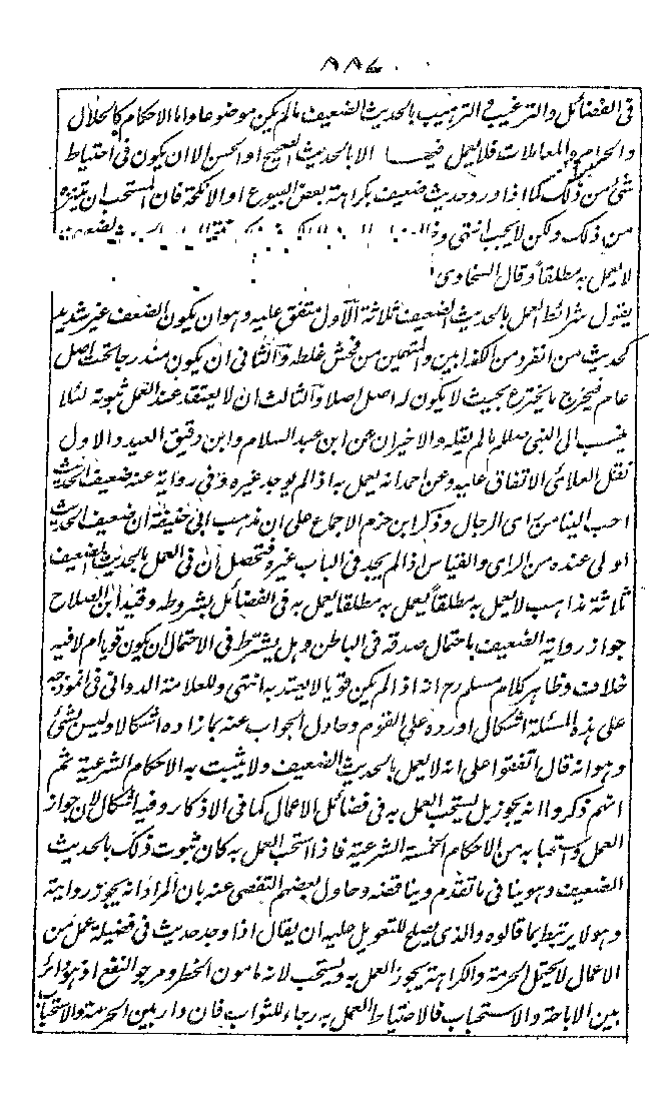 ٨٨٤
فى الفضائل والترغيب والترهيب بالحديث الضعيف مالم يكن موضوعا واما الاحكام كالحلال
والحرام والمعاملات فلا يعمل فيها الا بالحديث الصحيح او الحسن الا ان يكون فى احتياط
شئ من ذلك كما اذا ورد حديث ضعيف بكراهة بعض البيوع او الانكحة فان المستحب ان يتنزه
من ذلك ولكن لا يجب انتهى
لا يعمل به مطلقاً وقال السخاوى
يقول شرائط العمل بالحديث الضعيف ثلاثة الاول متفق عليه وهو ان يكون الضعف غير شديد
كحديث من انفرد من الكذابين والمتهمين من فحش غلطه والثانى ان يكون مندرجا تحت اصل
عام فيخرج ما يخترع بحيث لا يكون له اصل اصلا والثالث ان لا يعتقد عند العمل ثبوته لئلا
ينسب الى النبى صلعم مالم يقله والاخيران عن ابن عبد السلام وابن دقيق العيد والاول
نقل العلائى الاتفاق عليه وعن احمد انه يعمل به اذا لم يوجد غيره وفى رواية عنه ضعيف الحديث
احب الينا من راى الرجال وذكر ابن حزم الاجماع على ان مذهب ابى حنيفة ان ضعيف الحديث
اولى عنده من الراى والقياس اذا لم يجد فى الباب غيره فتحصل ان فى العمل بالحديث الضعيف
ثلاثة مذاهب لا يعمل به مطلقاً يعمل به مطلقا يعمل به فى الفضائل بشروطه وقيد ابن الصلاح
جواز رواية الضعيف باحتمال صدقه فى الباطن وهل يشترط فى الاحتمال ان يكون قويا ام لا فيه
خلاف وظاهر كلام مسلم رح انه اذا لم يكن قويا لا يعتد به انتهى وللعلامة الدوانى فى انموزجه
على هذه المسئلة اشكال اورده على القوم وحاول الجواب عنه بما زاده اشكالا وليس بشئ
وهو انه قال اتفقوا على انه لا يعمل بالحديث الضعيف ولا يثبت به الاحكام الشرعية ثم
انهم ذكروا انه يجوز بل يستحب العمل به فى فضائل الاعمال كما فى الاذكار وفيه اشكال لان جواز
العمل واستحبابه من الاحكام الخمسة الشرعية فاذا استحب العمل به كان ثبوت ذلك بالحديث
الضعيف وهو ينافى ما تقدم ويناقضه وحاول بعضهم التفصى عنه بان المراد انه يجوز روايته
وهو لا يرتبط بما قالوه والذى يصلح للتعويل عليه ان يقال اذا وجد حديث فى فضيلة عمل من
الاعمال لا يحتمل الحرمة والكراهة يجوز العمل به ويستحب لانه مامون الخطر ومرجو النفع اذ هو دائر
بين الاباحة والاستحباب فالاحتياط العمل به رجاء للثواب فان دار بين الحرمة والاستحباب